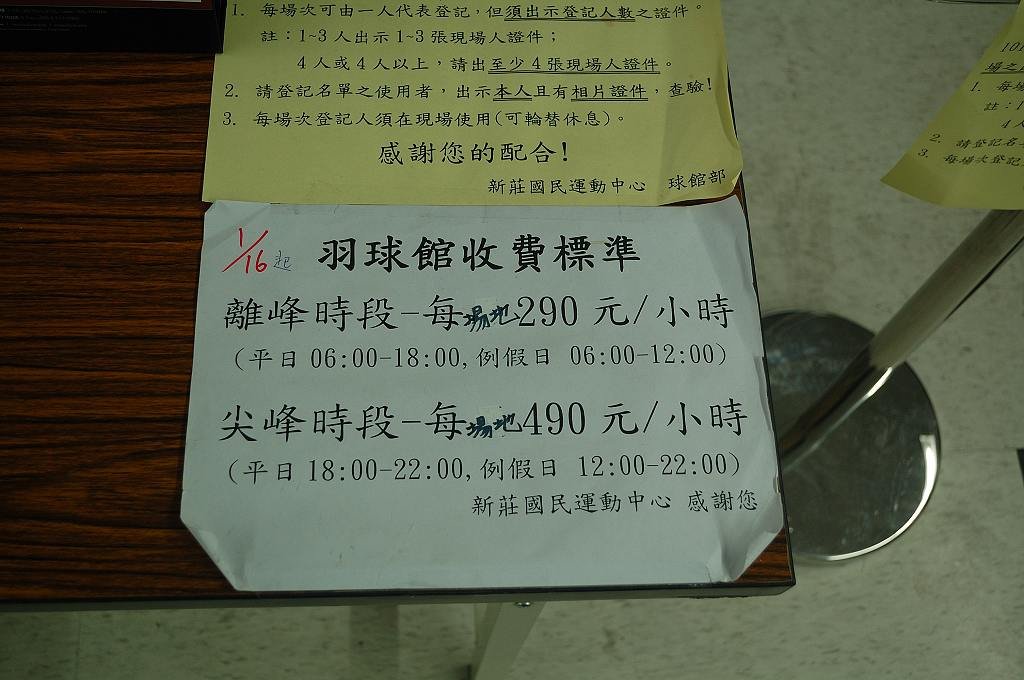 1. 每場次可由一人代表登記，但須出示登記人數之證件。
註：1~3 人出示 1~3 張現場人證件；
4 人或 4 人以上，請出至少 4 張現場人證件。
2. 請登記名單之使用者，出示本人且有相片證件，查驗！
3. 每場次登記人須在現場使用(可輪替休息)。
感謝您的配合！
新莊國民運動中心 球館部
1/16起 羽球館收費標準
離峰時段-每場地290 元/小時
(平日 06:00-18:00,例假日 06:00-12:00)
尖峰時段-每場地490 元/小時
(平日 18:00-22:00,例假日 12:00-22:00)
新莊國民運動中心 感謝您
101
場之
1. 每場
註：1
4 人
2. 請登記名
3. 每場次登記